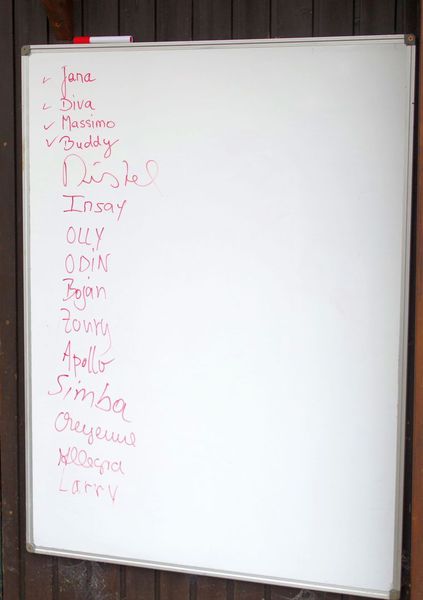 ✓ Jana
✓ Diva
✓ Massimo
✓ Buddy
Distel
Insay
OLLY
ODIN
Bojan
Zoury
Apollo
Simba
Cheyenne
Allegra
Larry